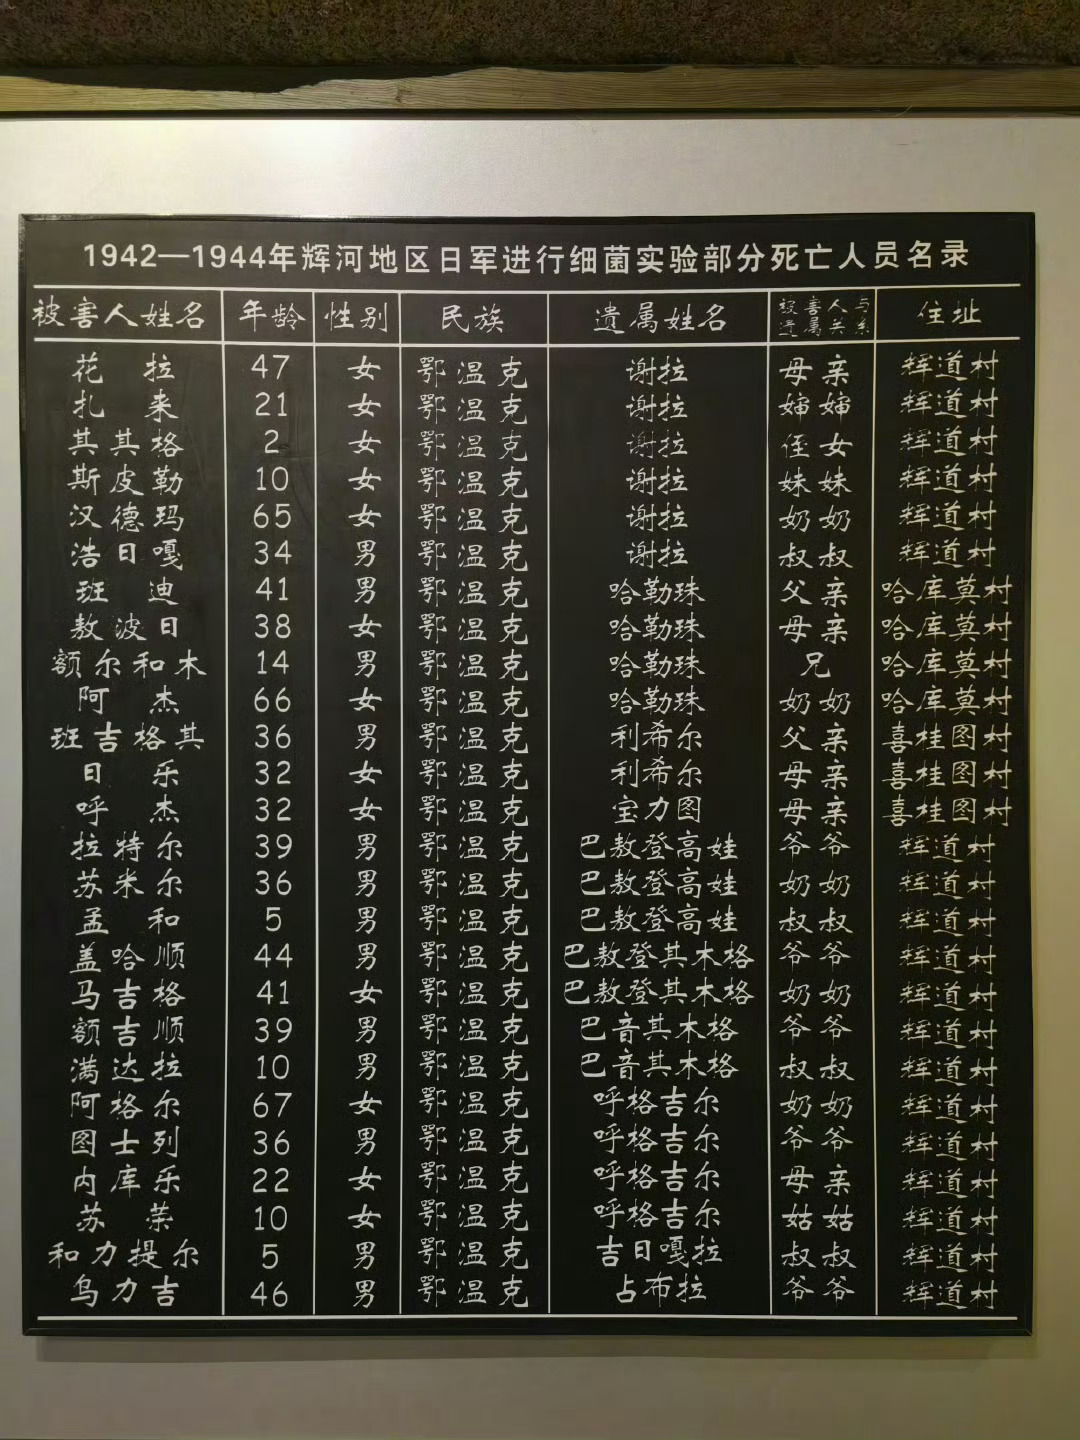 1942—1944年辉河地区日军进行细菌实验部分死亡人员名录
被害人姓名 年龄 性别 民族 遗属姓名 被害人与遗属关系 住址
花拉 47 女 鄂温克 谢拉 母亲 辉道村
扎来 21 女 鄂温克 谢拉 婶婶 辉道村
其其格 2 女 鄂温克 谢拉 侄女 辉道村
斯皮勒 10 女 鄂温克 谢拉 妹妹 辉道村
汉德玛 65 女 鄂温克 谢拉 奶奶 辉道村
浩日嘎 34 男 鄂温克 谢拉 叔叔 辉道村
班迪 41 男 鄂温克 哈勒珠 父亲 哈库莫村
敖波日 38 女 鄂温克 哈勒珠 母亲 哈库莫村
额尔和木 14 男 鄂温克 哈勒珠 兄 哈库莫村
阿杰 66 女 鄂温克 哈勒珠 奶奶 哈库莫村
班吉格其 36 男 鄂温克 利希尔 父亲 喜桂图村
日乐 32 女 鄂温克 利希尔 母亲 喜桂图村
呼杰 32 女 鄂温克 宝力图 母亲 喜桂图村
拉特尔 39 男 鄂温克 巴敖登高娃 爷爷 辉道村
苏米尔 36 男 鄂温克 巴敖登高娃 奶奶 辉道村
孟和 5 男 鄂温克 巴敖登高娃 叔叔 辉道村
盖哈顺 44 男 鄂温克 巴敖登其木格 爷爷 辉道村
马吉格 41 女 鄂温克 巴敖登其木格 奶奶 辉道村
额吉顺 39 男 鄂温克 巴音其木格 爷爷 辉道村
满达拉 10 男 鄂温克 巴音其木格 叔叔 辉道村
阿格尔 67 女 鄂温克 呼格吉尔 奶奶 辉道村
图士列 36 男 鄂温克 呼格吉尔 爷爷 辉道村
内库乐 22 女 鄂温克 呼格吉尔 母亲 辉道村
苏荣 10 女 鄂温克 呼格吉尔 姑姑 辉道村
和力提尔 5 男 鄂温克 吉日嘎拉 叔叔 辉道村
乌力吉 46 男 鄂温克 占布拉 爷爷 辉道村